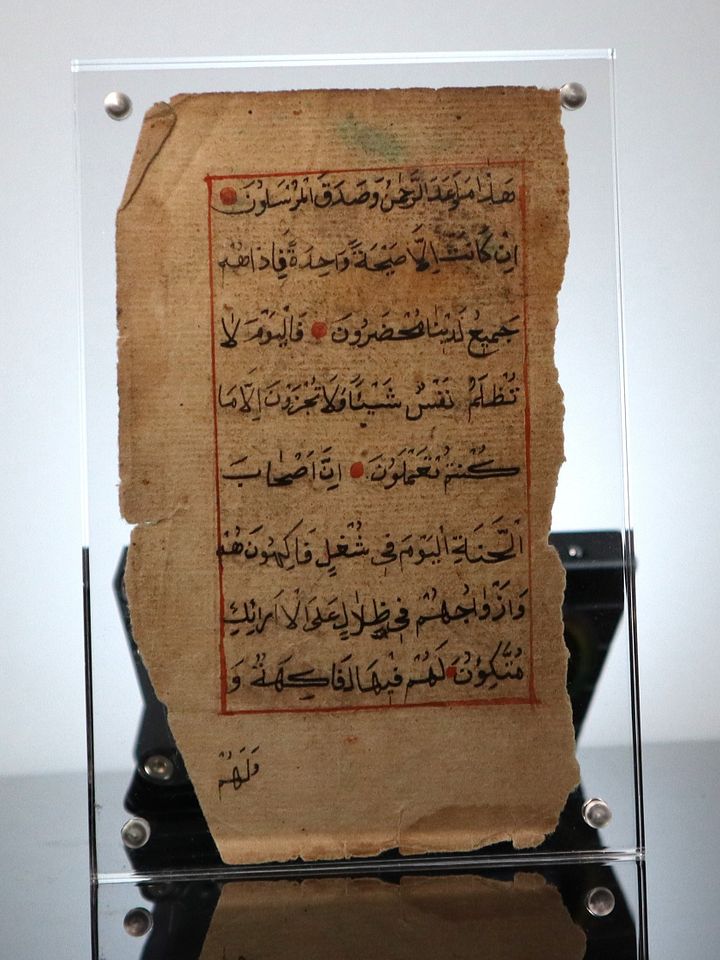 هَذَا مَا وَعَدَ الرَّحْمٰنُ وَصَدَقَ الْمُرْسَلُونَ
اِنْ كَانَتْ اِلَّا صَيْحَةً وَاحِدَةً فَاِذَا هُمْ
جَمِيعٌ لَدَيْنَا مُحْضَرُونَ فَالْيَوْمَ لَا
تُظْلَمُ نَفْسٌ شَيْئًا وَلَا تُجْزَوْنَ اِلَّا مَا
كُنْتُمْ تَعْمَلُونَ اِنَّ اَصْحَابَ
الْجَنَّةِ الْيَوْمَ فِي شُغُلٍ فَاكِهُونَ هُمْ
وَاَزْوَاجُهُمْ فِي ظِلَالٍ عَلَى الْاَرَائِكِ
مُتَّكِؤُنَ لَهُمْ فِيهَا فَاكِهَةٌ وَ
وَلَهُمْ